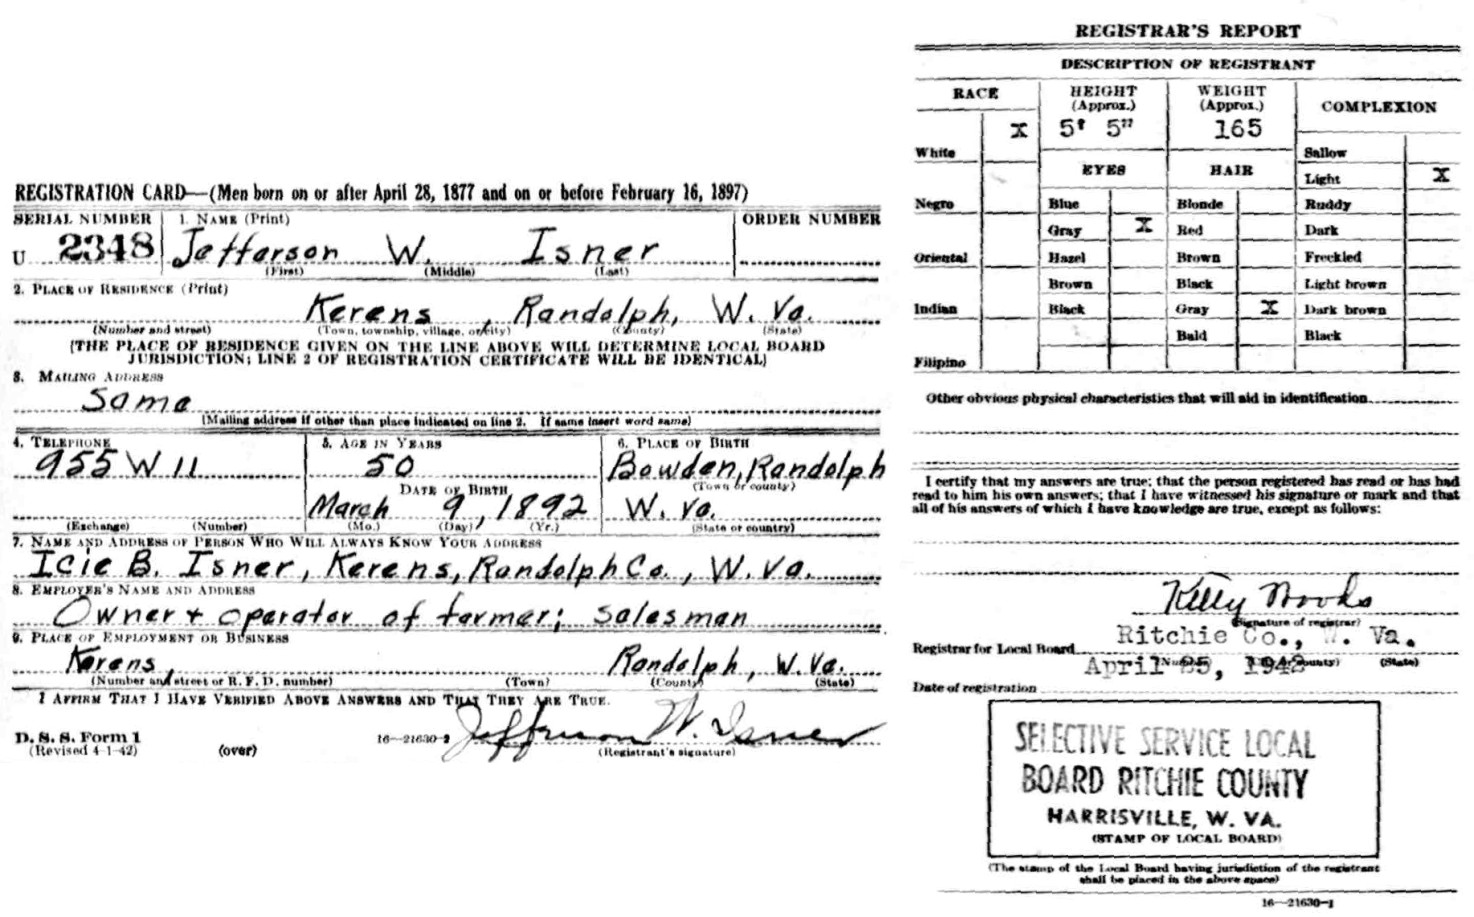 REGISTRATION CARD—(Men born on or after April 28, 1877 and on or before February 16, 1897)
SERIAL NUMBER 1. NAME (Print) ORDER NUMBER
U 2348 Jefferson W. Isner
(First) (Middle) (Last)
2. PLACE OF RESIDENCE (Print)
Kerens, Randolph, W. Va.
(Number and street) (Town, township, village, or city) (County) (State)
(THE PLACE OF RESIDENCE GIVEN ON THE LINE ABOVE WILL DETERMINE LOCAL BOARD
JURISDICTION; LINE 2 OF REGISTRATION CERTIFICATE WILL BE IDENTICAL)
3. MAILING ADDRESS
Same
(Mailing address if other than place indicated on line 2. If same insert word same)
4. TELEPHONE 5. AGE IN YEARS 6. PLACE OF BIRTH
955 W 11 50 Bowden, Randolph
DATE OF BIRTH (Town or county)
March 9, 1892 W. Va.
(Exchange) (Number) (Mo.) (Day) (Yr.) (State or country)
7. NAME AND ADDRESS OF PERSON WHO WILL ALWAYS KNOW YOUR ADDRESS
Icie B. Isner, Kerens, Randolph Co., W. Va.
8. EMPLOYER'S NAME AND ADDRESS
Owner + operator of farmer; salesman
9. PLACE OF EMPLOYMENT OR BUSINESS
Kerens, Randolph, W. Va.
(Number and street or R. F. D. number) (Town) (County) (State)
I AFFIRM THAT I HAVE VERIFIED ABOVE ANSWERS AND THAT THEY ARE TRUE.
Jefferson W. Isner
D. S. S. Form 1
(Revised 4-1-42) (over) 16—21630-2 (Registrant's signature)
REGISTRAR'S REPORT
DESCRIPTION OF REGISTRANT
RACE HEIGHT (Approx.) WEIGHT (Approx.) COMPLEXION
White X 5' 5" 165 Sallow
EYES HAIR Light X
Negro Blue Blonde Ruddy
Gray X Red Dark
Oriental Hazel Brown Freckled
Brown Black Light brown
Indian Black Gray X Dark brown
Bald Black
Filipino
Other obvious physical characteristics that will aid in identification
I certify that my answers are true; that the person registered has read or has had
read to him his own answers; that I have witnessed his signature or mark and that
all of his answers of which I have knowledge are true, except as follows:
Kitty Woods
(Signature of registrar)
Ritchie Co., W. Va.
Registrar for Local Board
April 25, 1942 (County) (State)
Date of registration
SELECTIVE SERVICE LOCAL
BOARD RITCHIE COUNTY
HARRISVILLE, W. VA.
(STAMP OF LOCAL BOARD)
(The stamp of the Local Board having jurisdiction of the registrant
shall be placed in the above space)
16—21630-1